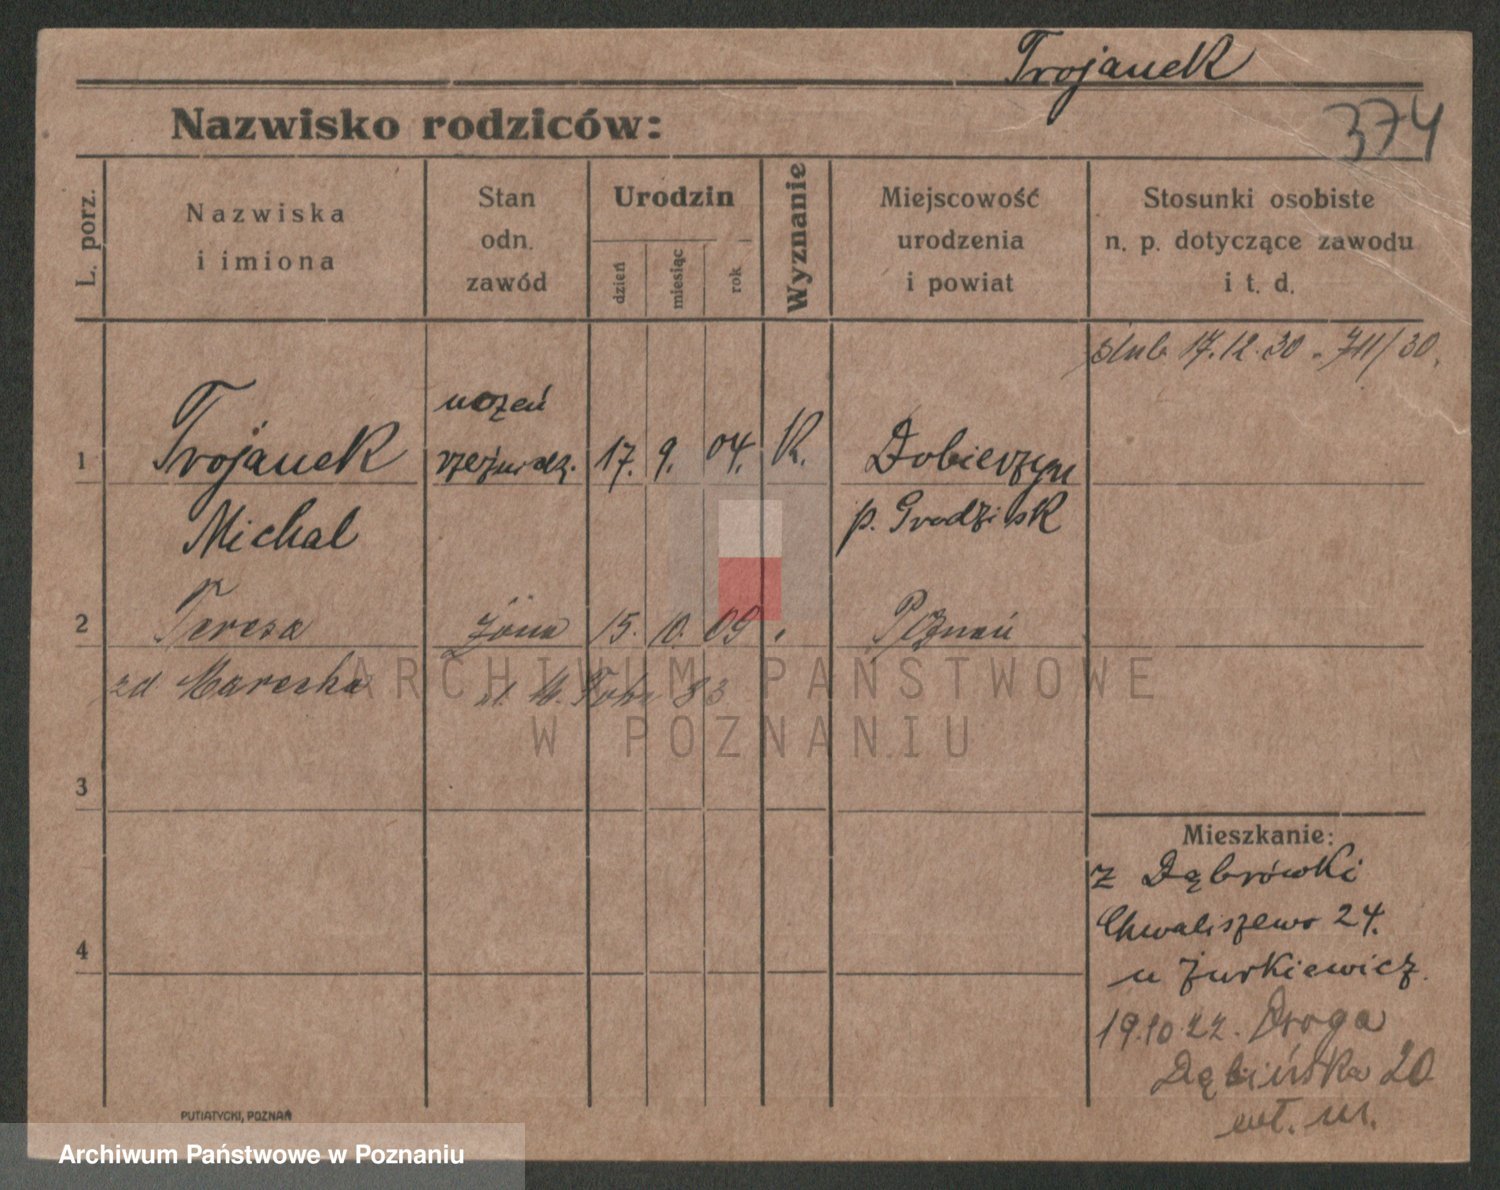 Trojanek
Nazwisko rodziców:
374
L. porz.
Nazwiska
i imiona
Stan
odn.
zawód
Urodzin
dzień
miesiąc
rok
Wyznanie
Miejscowość
urodzenia
i powiat
Stosunki osobiste
n. p. dotyczące zawodu
i t. d.
ślub 17.12.30 711/30.
uczeń
1 Trojanek rzeźnicz. 17. 9. 04. K. Dobieżyn
Michal p. Grodzisk
2 Teresa żona 15. 10. 09 Poznań
zd Marecka 83
3
Mieszkanie:
z Dąbrówki
Chwaliszewo 24.
4
u Jurkiewicz.
19.10.22. Droga
Dąbińska 20
PUTIATYCKI, POZNAŃ
ARCHIWUM PAŃSTWOWE
W POZNANIU
Archiwum Państwowe w Poznaniu